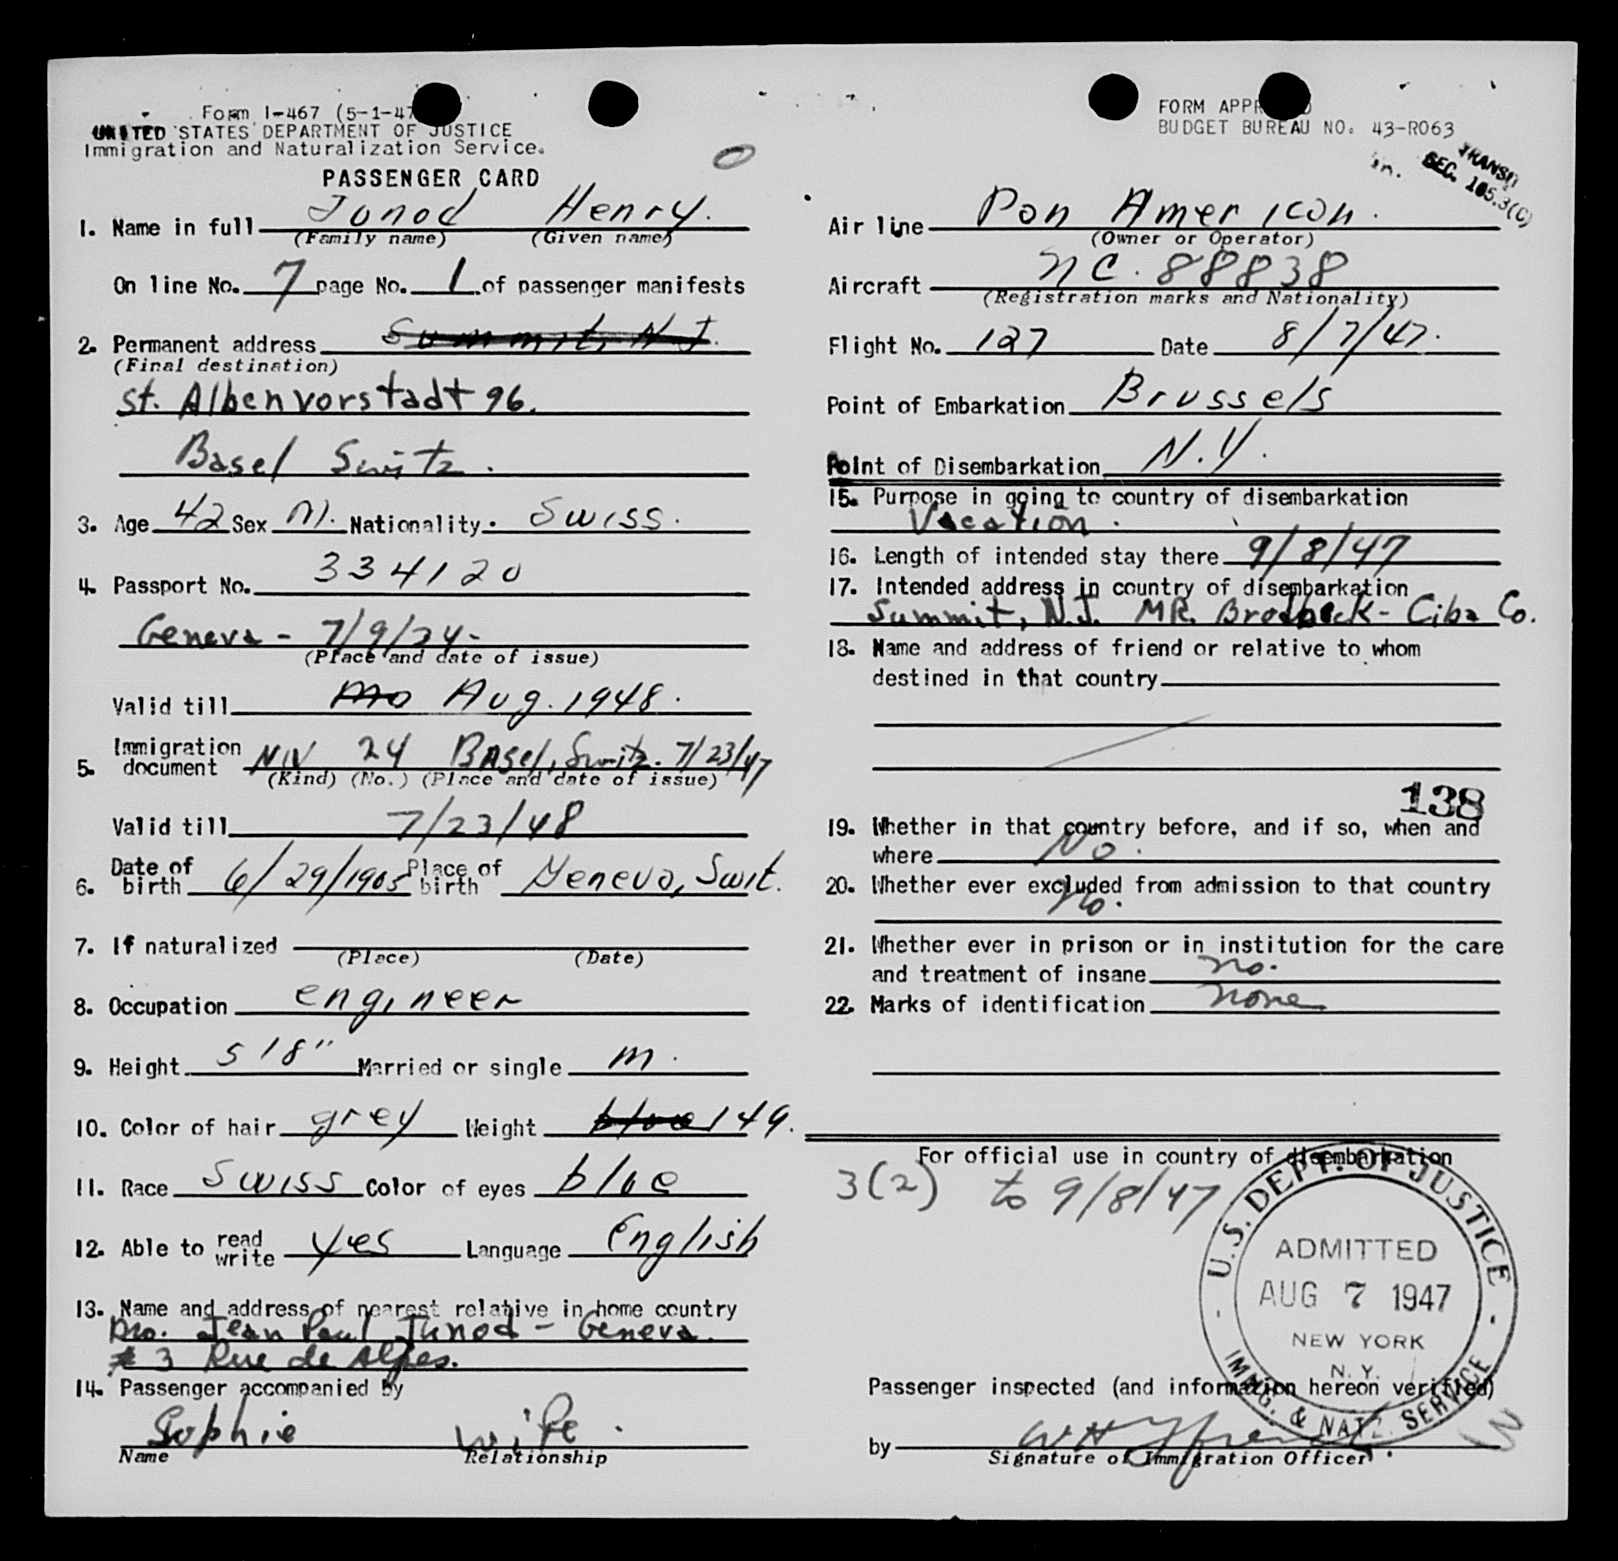 Form I-467 (5-1-47
UNITED STATES DEPARTMENT OF JUSTICE
Immigration and Naturalization Service.
PASSENGER CARD
1. Name in full Junod Henry.
(Family name) (Given name)
On line No. 7 page No. 1 of passenger manifests
2. Permanent address Summit, N J.
(Final destination)
St. Albenvorstadt 96.
Basel Switz.
3. Age 42 Sex M. Nationality. Swiss.
4. Passport No. 334120
Geneva - 7/9/34-
(Place and date of issue)
Valid till Aug. 1948.
5. Immigration document NIV 24 Basel, Switz. 7/23/47
(Kind) (No.) (Place and date of issue)
Valid till 7/23/48
6. Date of birth 6/29/1905 Place of birth Geneva, Swit.
7. If naturalized
(Place) (Date)
8. Occupation engineer
9. Height 5'8" Married or single m.
10. Color of hair grey Weight blue 149.
11. Race Swiss Color of eyes blue
12. Able to read write yes Language English
13. Name and address of nearest relative in home country
Jean Paul Junod - Geneva.
3 Rue de Alpes.
14. Passenger accompanied by
Sophie wife.
Name Relationship
FORM APPROVED
BUDGET BUREAU NO. 43-R063
TRANSIT
SEC. 105.3(C)
Air line Pan American.
(Owner or Operator)
Aircraft NC. 88838
(Registration marks and Nationality)
Flight No. 127 Date 8/7/47.
Point of Embarkation Brussels
Point of Disembarkation N.Y.
15. Purpose in going to country of disembarkation
Vacation.
16. Length of intended stay there 9/8/47
17. Intended address in country of disembarkation
Summit, N.J. MR. Brodbeck - Ciba Co.
18. Name and address of friend or relative to whom
destined in that country
138
19. Whether in that country before, and if so, when and
where No.
20. Whether ever excluded from admission to that country
No.
21. Whether ever in prison or in institution for the care
and treatment of insane no.
22. Marks of identification none
For official use in country of disembarkation
3(2) to 9/8/47
U.S. DEPT. OF JUSTICE
ADMITTED
AUG 7 1947
NEW YORK
N.Y.
IMMIG. & NATZ. SERVICE
Passenger inspected (and information hereon verified)
by
Signature of Immigration Officer